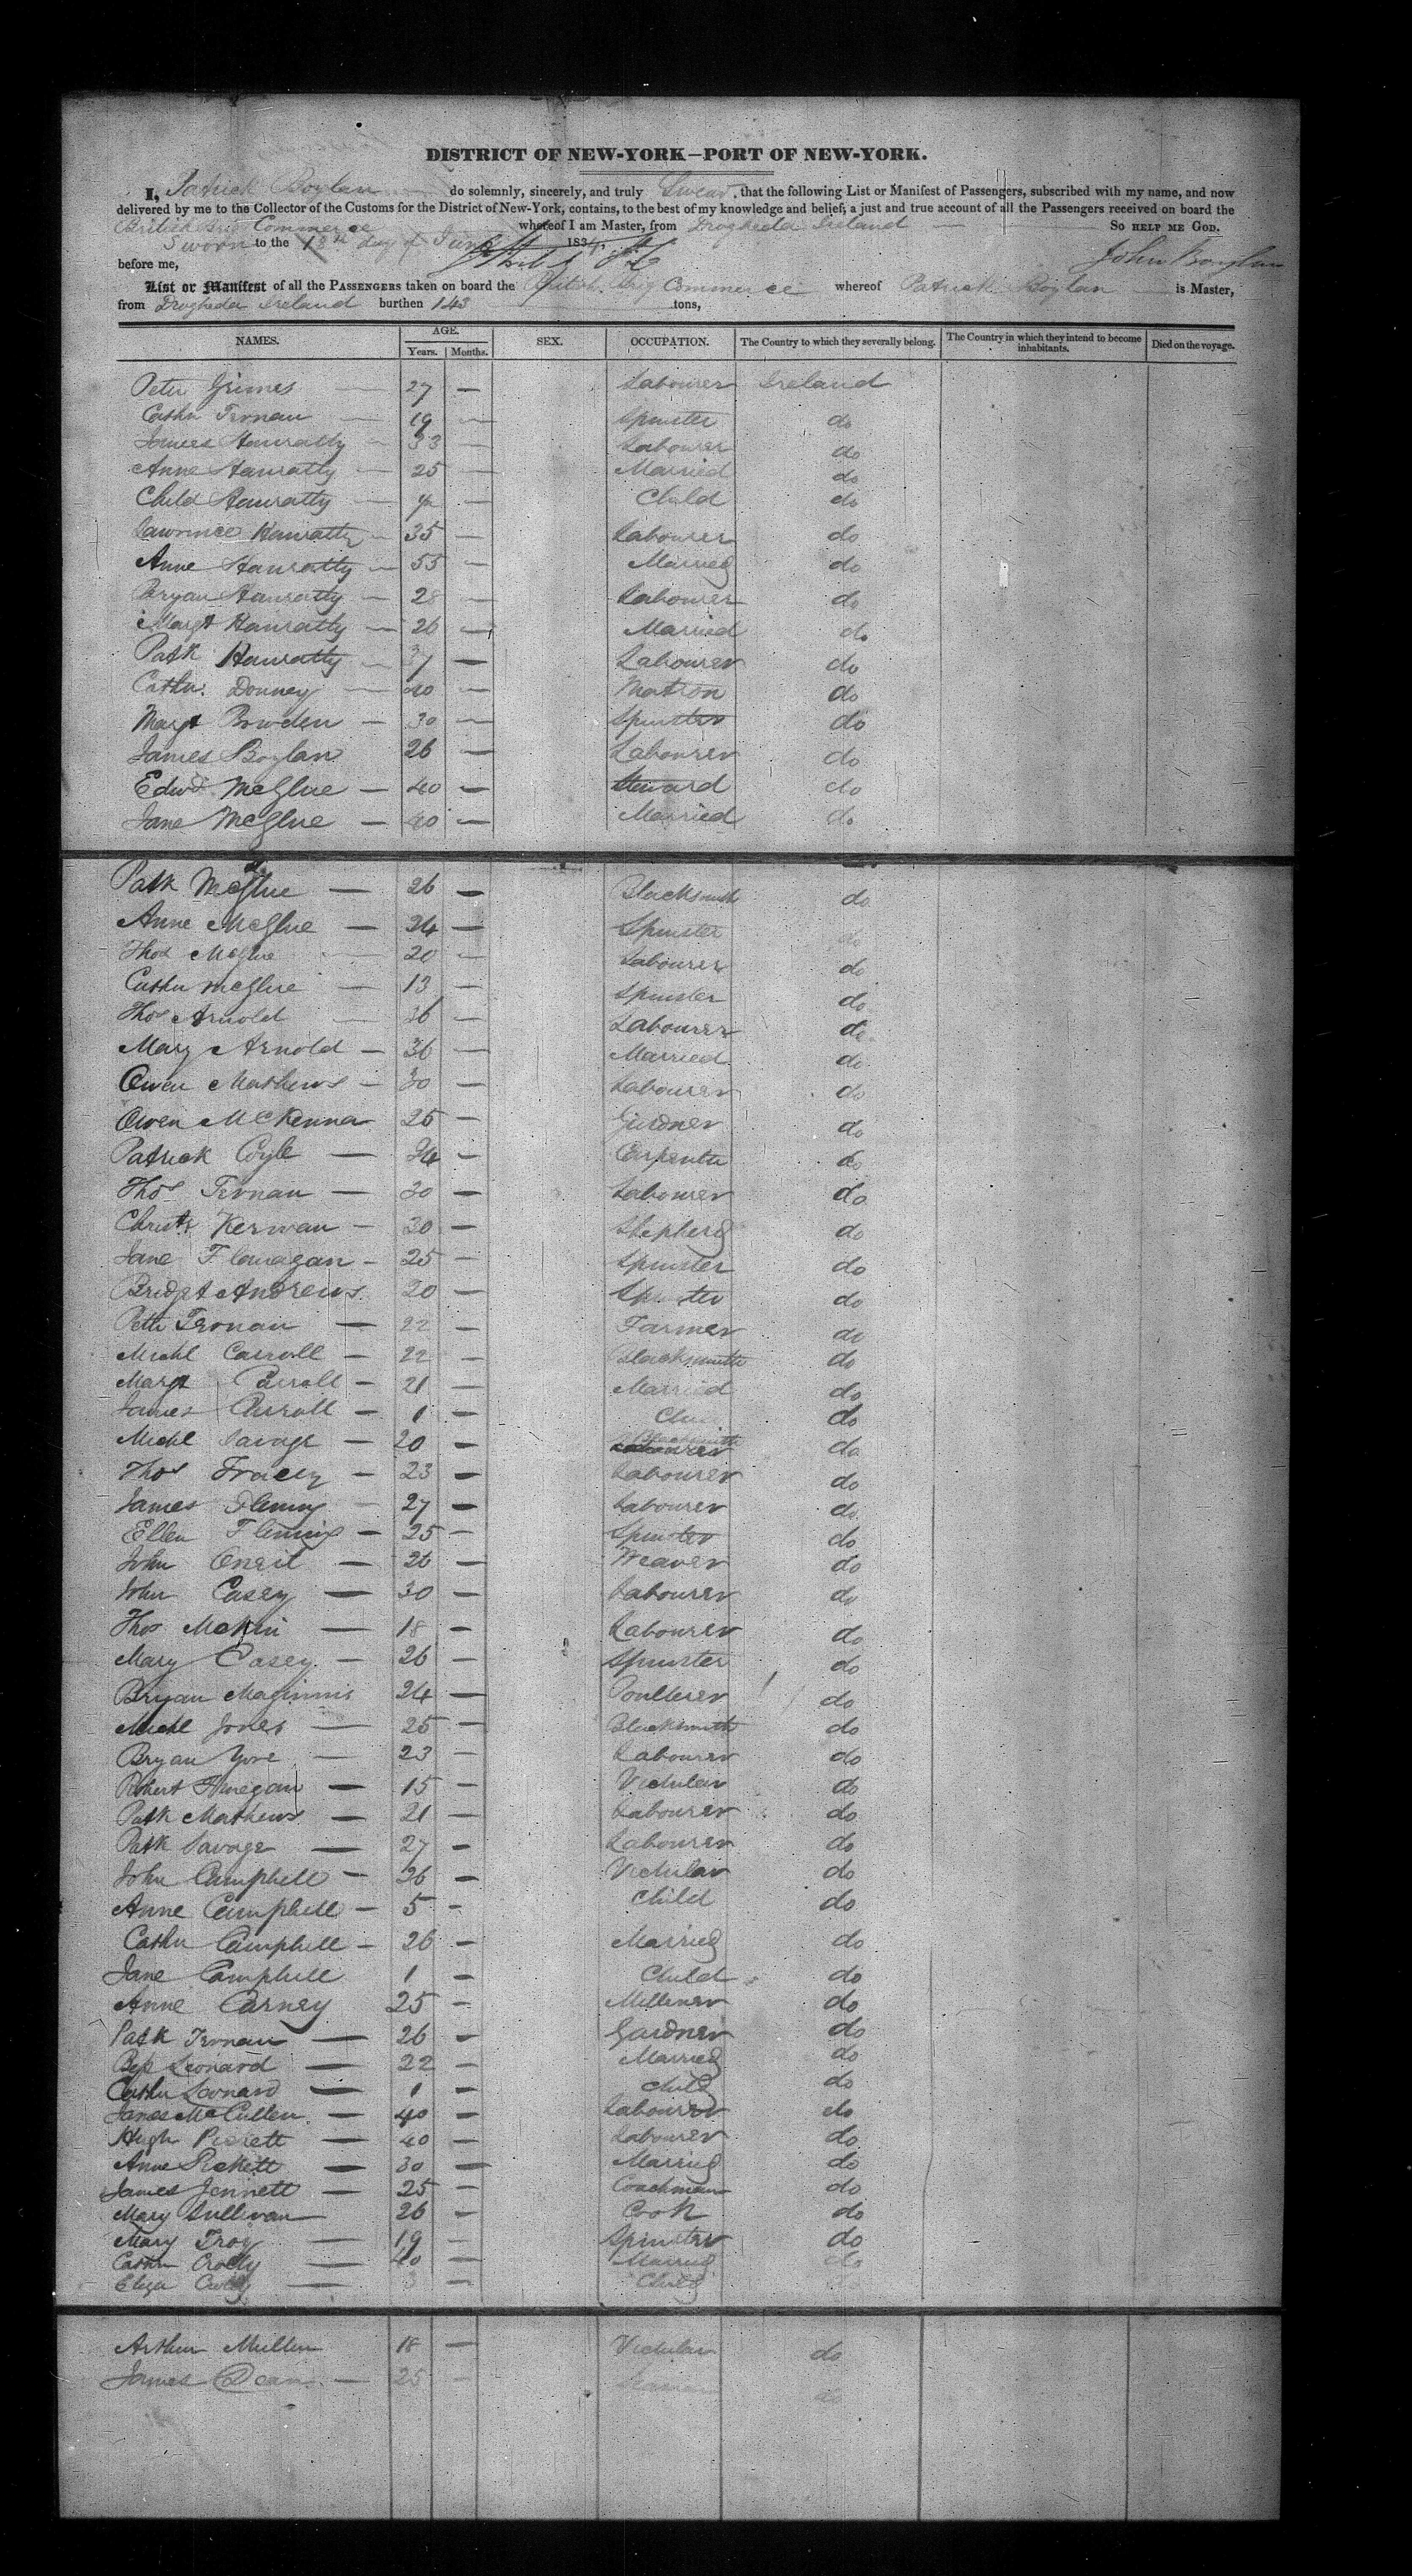 DISTRICT OF NEW-YORK—PORT OF NEW-YORK.
I, Patrick Boylan do solemnly, sincerely, and truly Swear, that the following List or Manifest of Passengers, subscribed with my name, and now
delivered by me to the Collector of the Customs for the District of New-York, contains, to the best of my knowledge and belief, a just and true account of all the Passengers received on board the
British Brig Commerce whereof I am Master, from Drogheda Ireland So HELP ME GOD.
Sworn to the 18th day of June 1834.
before me, John Boylan
List or Manifest of all the PASSENGERS taken on board the British Brig Commerce whereof Patrick Boylan is Master,
from Drogheda Ireland burthen 143 tons,
NAMES. AGE. Years. Months. SEX. OCCUPATION. The Country to which they severally belong. The Country in which they intend to become inhabitants. Died on the voyage.
Peter Grimes — 27 — Labourer Ireland
Cathn Ternan — 19 — Spinster do
James Hanratty — 33 — Labourer do
Anne Hanratty — 25 — Married do
Child Hanratty — — Child do
Lawrence Hanratty — 35 — Labourer do
Anne Hanratty — 55 — Married do
Bryan Hanratty — 28 — Labourer do
Margt Hanratty — 26 — Married do
Patk Hanratty — 37 — Labourer do
Cathn. Donney — 40 — Matron do
Margt Bowden — 30 — Spinster do
James Boylan 26 — Labourer do
Edwd McGlue — 40 — Steward do
Jane McGlue — 40 — Married do
Patk McGlue — 26 — Blacksmith do
Anne McGlue — 24 — Spinster
Thos McGlue — 20 — Labourer do
Cathn McGlue — 13 — Spinster do
Thos Arnold — 36 — Labourer do
Mary Arnold — 36 — Married do
Owen Mathews — 30 — Labourer do
Owen McKenna 25 — Gardner do
Patrick Coyle — 24 — Carpenter do
Thos Ternan — 30 — Labourer do
Christr Kerwan — 30 — Shepherd do
Jane Flanagan — 25 — Spinster do
Bridgt Andrews 20 — Spinster do
Peter Ternan — 22 — Farmer do
Michl Carroll — 22 — Blacksmith do
Margt Carroll — 21 — Married do
James Carroll — 1 — Child do
Michl Savage — 20 — Blacksmith do
Thos Tracey — 23 — Labourer do
James Fleming — 27 — Labourer do
Ellen Fleming — 25 — Spinster do
John Oneil — 26 — Weaver do
John Casey — 30 — Labourer do
Thos McKin — 18 — Labourer do
Mary Casey — 26 — Spinster do
Bryan Maginnis 24 — Poulterer do
Michl Jones — 25 — Blacksmith do
Bryan Yore — 23 — Labourer do
Robert Finegan — 15 — Victular do
Patk Mathews — 21 — Labourer do
Patk Savage — 27 — Labourer do
John Campbell — 26 — Victular do
Anne Campbell — 5 — Child do
Cathn Campbell — 26 — Married do
Jane Campbell 1 — Child do
Anne Carney 25 — Milliner do
Patk Ternan — 26 — Gardner do
Bess Leonard — 22 — Married do
Cathn Leonard — 1 — Child do
James McCullen — 40 — Labourer do
Hugh — 40 — Labourer do
Anne — 30 — Married do
James Jennett — 25 — Coachman do
Mary Sullivan 26 — Cook do
Mary Troy — 19 — Spinster do
Cathn Crolly — 40 — Married do
Eliza Crolly — 3 — Child
Arthur Mullen 18 — Victular do
James Dean — 25 — do